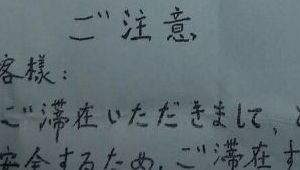 ご注意
客様：
ご滞在いただきまして、
安全するため、ご滞在す